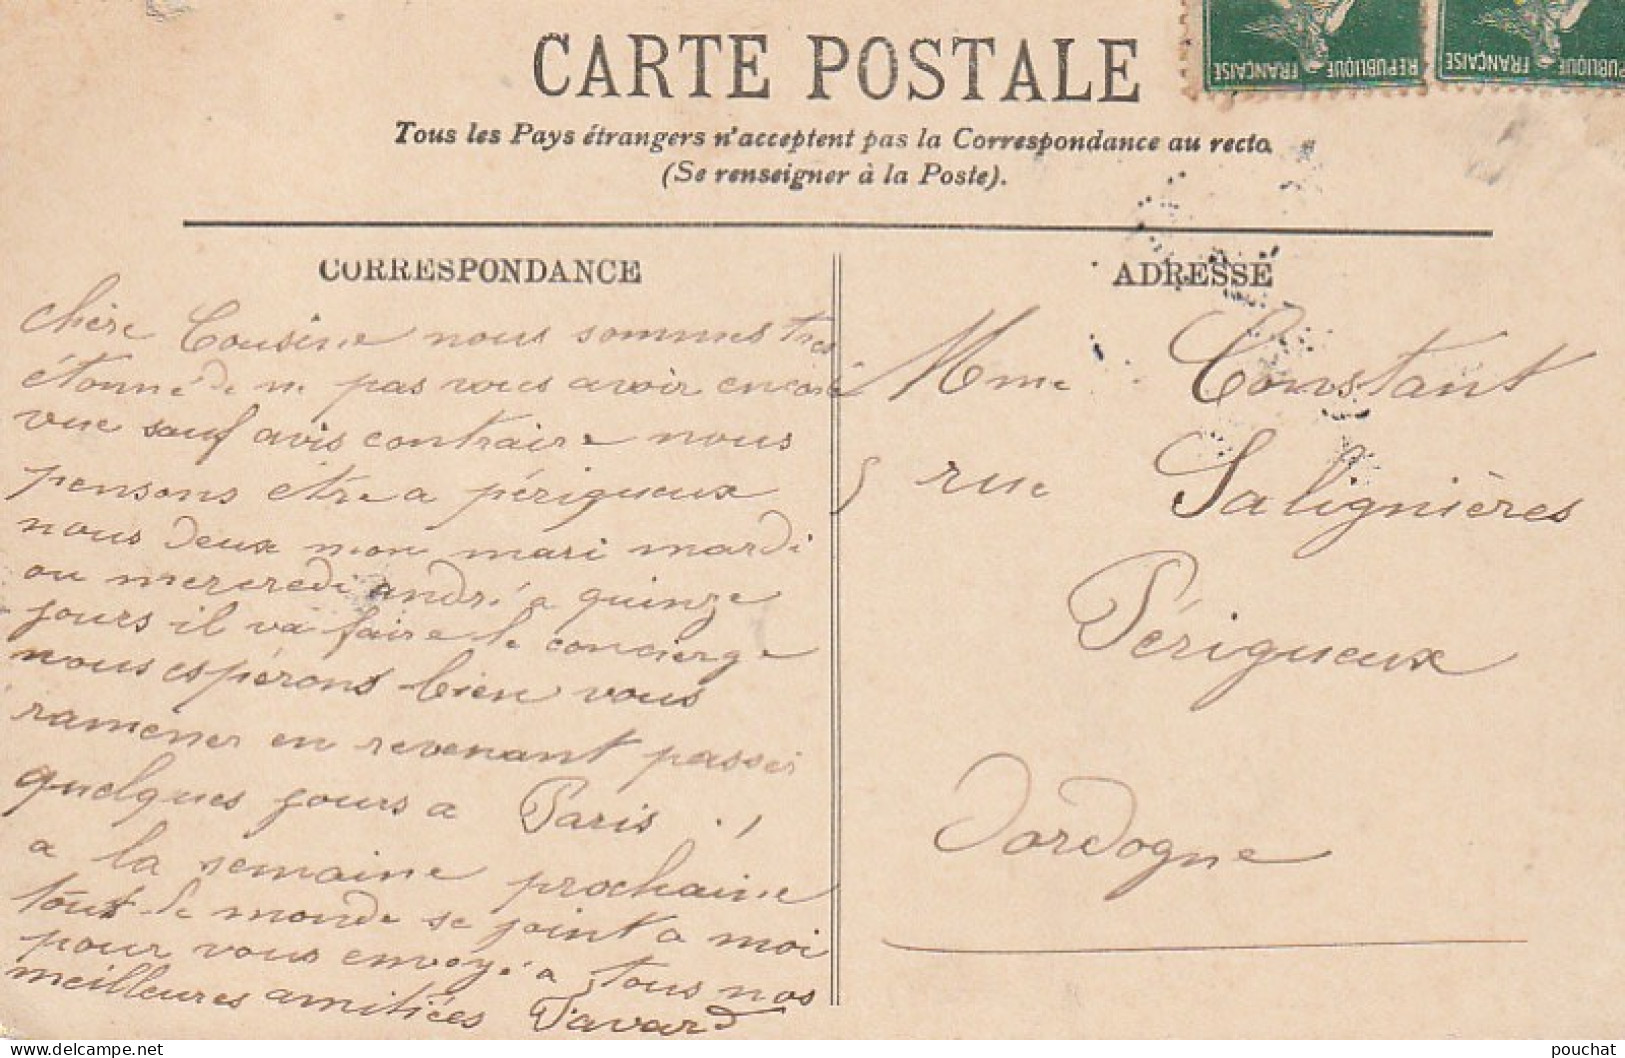 CARTE POSTALE
Tous les Pays étrangers n'acceptent pas la Correspondance au recto
(Se renseigner à la Poste).
RÉPUBLIQUE FRANÇAISE
PUBLIQUE FRANÇAISE
CORRESPONDANCE
chère Cousine nous sommes tres
étonné de ne pas vous avoir encore
vue sauf avis contraire nous
pensons être a périgueux
nous deux mon mari mardi
ou mercredi andré a quinze
jours il va faire le concierge
nous espérons bien vous
ramener en revenant passer
quelques jours a Paris !
a la semaine prochaine
tout le monde se joint a moi
pour vous envoyé a tous nos
meilleures amitiées Favard
ADRESSE
Mme Constant
5 rue Salignières
Périgueux
Dordogne
pouchat